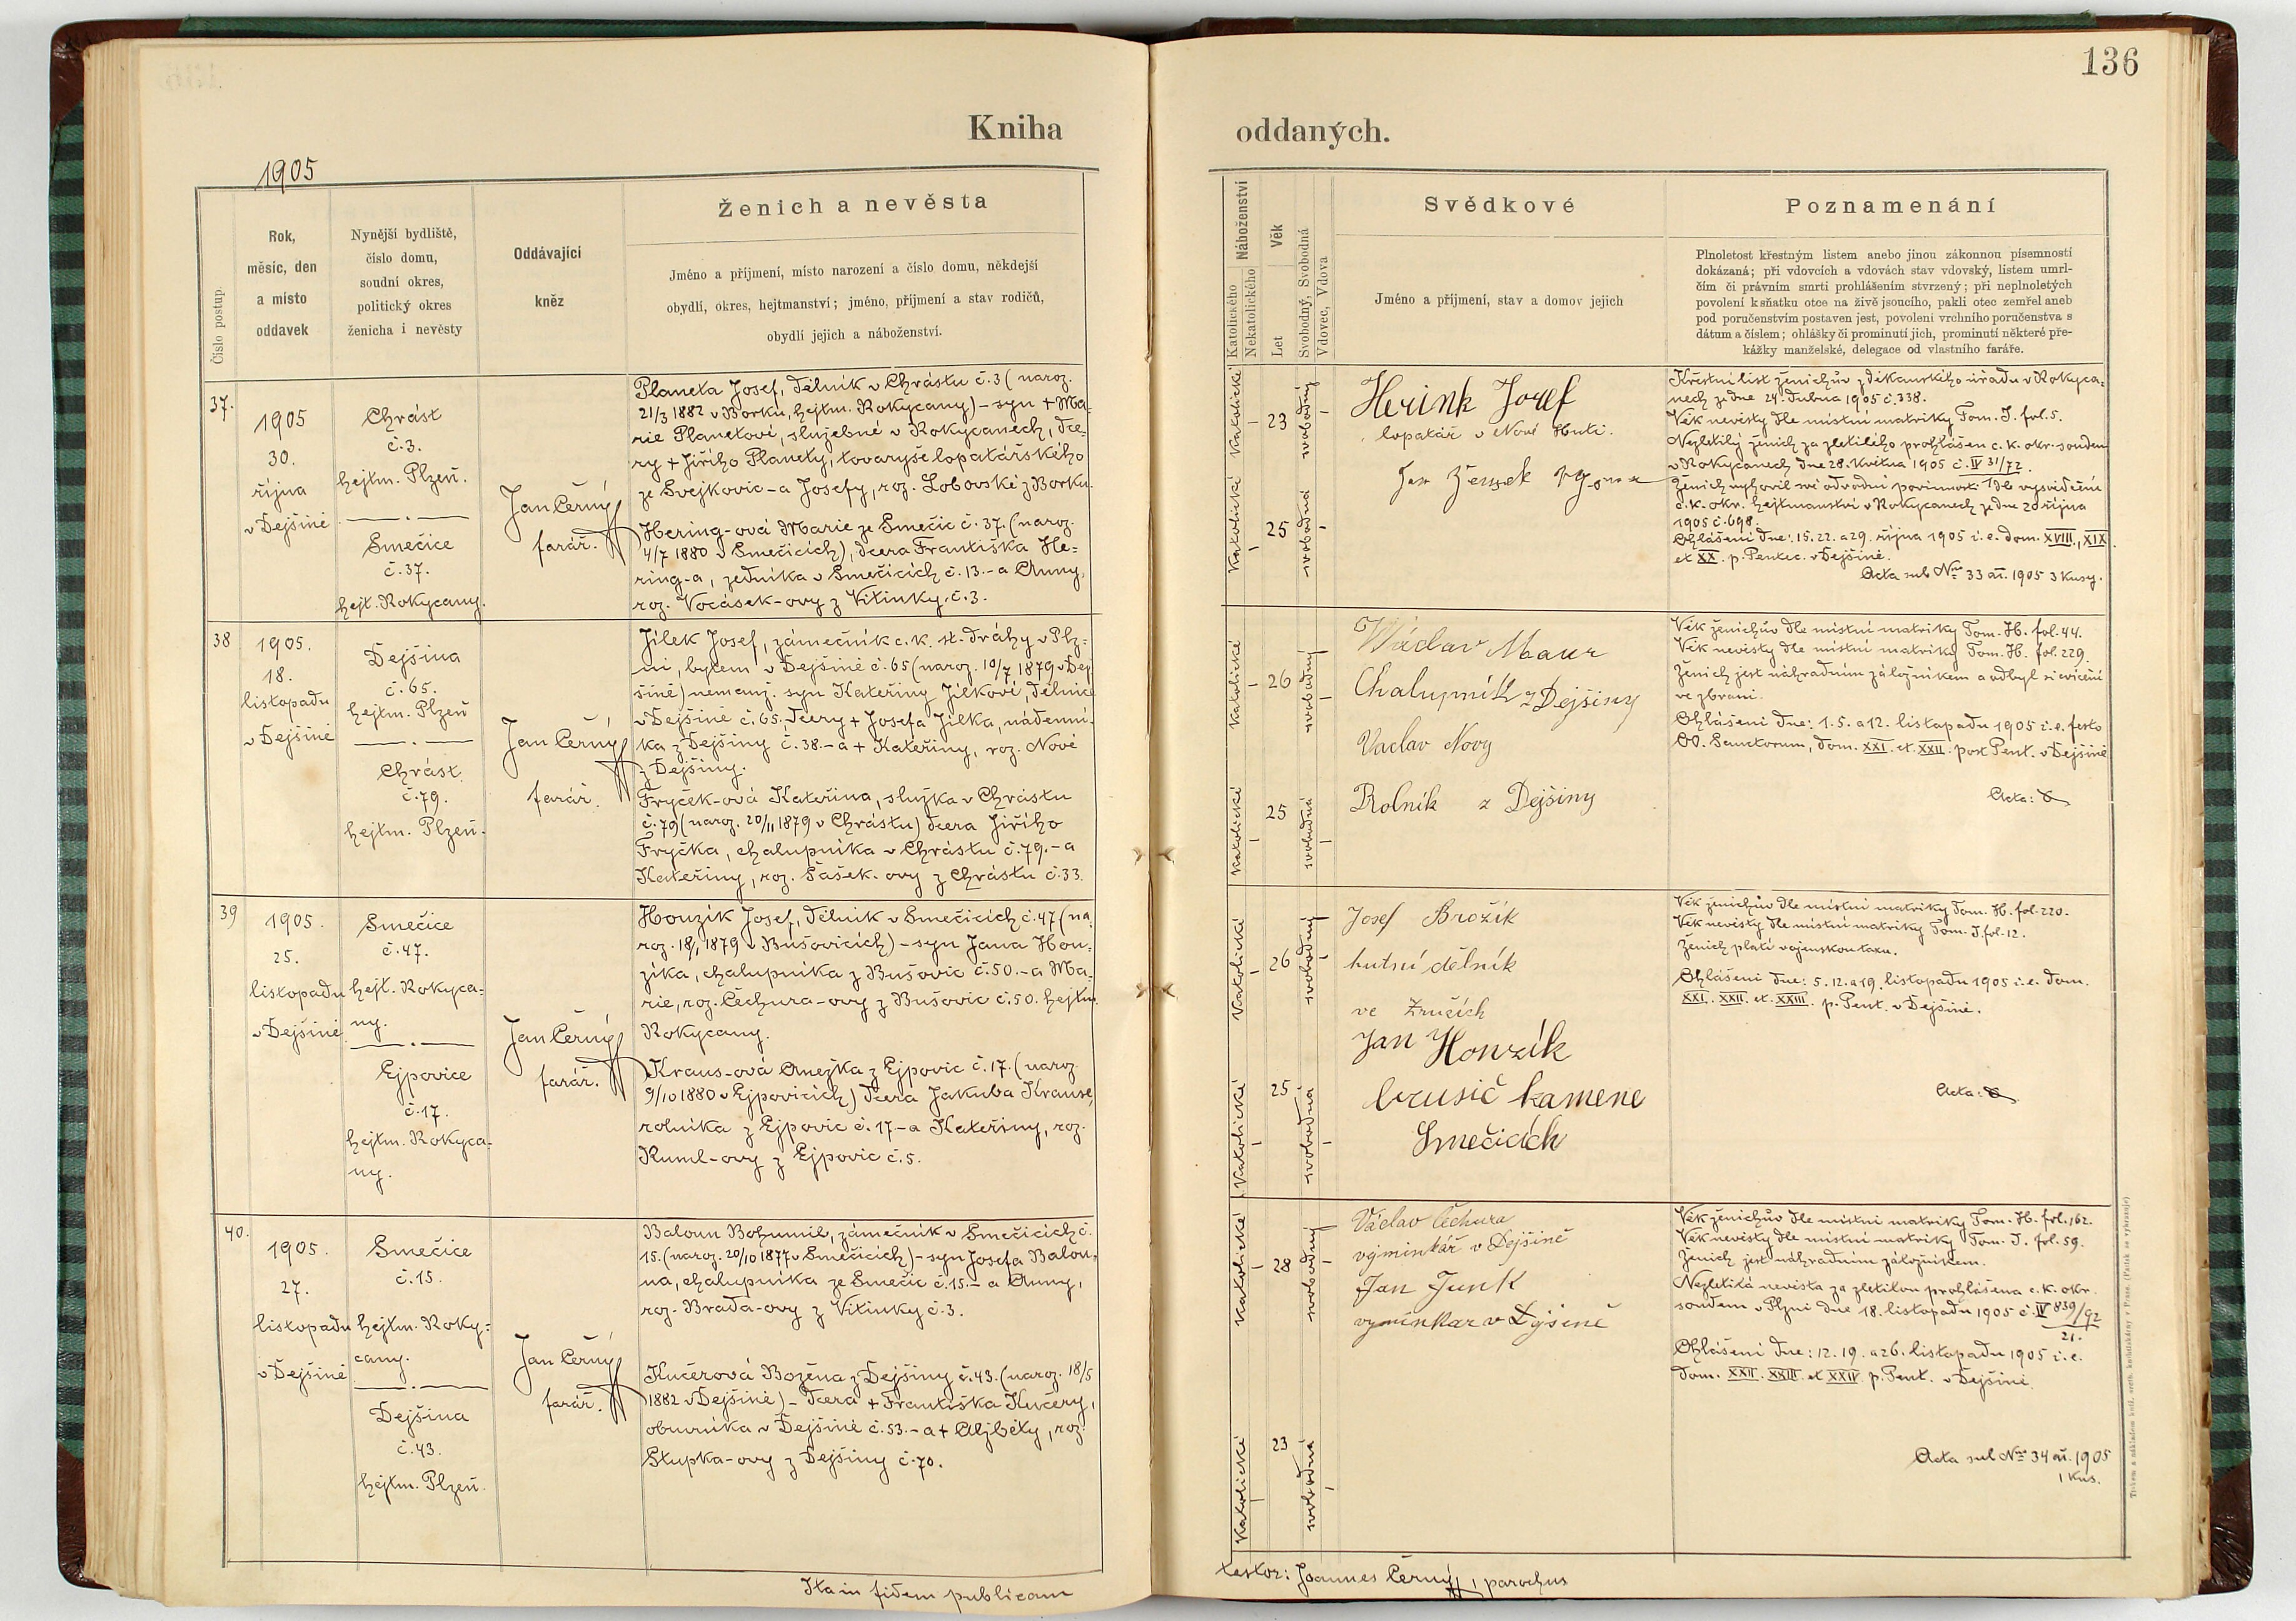 136
Kniha oddaných.
1905
Číslo postup.
Rok, měsíc, den a místo oddavek
Nynější bydliště, číslo domu, soudní okres, politický okres ženicha i nevěsty
Oddávající kněz
Ženich a nevěsta
Jméno a příjmení, místo narození a číslo domu, někdejší
obydlí, okres, hejtmanství; jméno, příjmení a stav rodičů,
obydlí jejich a náboženství.
Náboženství
Katolického
Nekatolického
Věk
Let
Svobodný, Svobodná
Vdovec, Vdova
Svědkové
Jméno a příjmení, stav a domov jejich
Poznamenání
Plnoletost křestným listem anebo jinou zákonnou písemností
dokázaná; při vdovcích a vdovách stav vdovský, listem umrl-
čím či právním smrti prohlášením stvrzený; při neplnoletých
povolení k sňatku otce na živě jsoucího, pakli otec zemřel aneb
pod poručenstvím postaven jest, povolení vrchního poručenstva s
dátum a číslem; ohlášky či prominutí jich, prominutí některé pře-
kážky manželské, delegace od vlastního faráře.
37.
1905
30.
října
v Dejšině
Chrást
č. 3.
hejtm. Plzeň.
Smečice
č. 37.
hejt. Rokycany.
Jan Černý
farář.
Planeta Josef, dělník v Chrástu č. 3 (naroz.
21/3 1882 v Borku, hejtm. Rokycany) - syn + Ma-
rie Planetové, služebné v Rokycanech, dce-
ry + Jiřího Planety, tovaryše lopatářského
ze Svejkovic - a Josefy, roz. Lobovské z Borku.
Hering-ová Marie ze Smečic č. 37. (naroz.
4/7 1880 v Smečicích), dcera Františka He-
ring-a, zedníka v Smečicích č. 13. - a Anny,
roz. Vocásek-ovy z Vitinky č. 3.
Katolické
23
svobodný
Katolické
25
svobodná
Herink Josef
lopatář v Nové Huti.
Jan
Křestní list ženichův z děkanského úřadu v Rokyca-
nech ze dne 24. dubna 1905 č. 338.
Věk nevěsty dle místní matriky Tom. I. fol. 5.
Nezletilý ženich za zletilého prohlášen c. k. okr. soudem
v Rokycanech dne 28. května 1905 č. IV 31/72.
Ženich vyhověl své odvodní povinnosti dle vysvědčení
c. k. okr. hejtmanství v Rokycanech ze dne 20 října
1905 č. 698.
Ohlášení dne: 15. 22. a 29. října 1905 i. e. dom. XVIII., XIX.
et XX. p. Pentec. v Dejšině.
Acta sub Nro 33 aõ. 1905 3 kusy.
38
1905.
18.
listopadu
v Dejšině
Dejšina
č. 65.
hejtm. Plzeň
Chrást
č. 79.
hejtm. Plzeň.
Jan Černý
farář.
Jílek Josef, zámečník c. k. st. dráhy v Plz-
ni, bytem v Dejšině č. 65 (naroz. 10/7 1879 v Dej
šině) nemanž. syn Kateřiny Jílkové, dělnice
v Dejšině č. 65, dcery + Josefa Jílka, nádenní-
ka z Dejšiny č. 38. - a + Kateřiny, roz. Nové
z Dejšiny.
Fryček-ová Kateřina, služka v Chrástu
č. 79 (naroz. 20/11 1879 v Chrástu) dcera Jiřího
Fryčka, chalupníka v Chrástu č. 79. - a
Kateřiny, roz. Šašek-ovy z Chrástu č. 33.
Katolické
26
svobodný
Katolické
25
svobodná
Václav Maur
Chalupník z Dejšiny
Vaclav Novy
Rolník z Dejšiny
Věk ženichův dle místní matriky Tom. H. fol. 44.
Věk nevěsty dle místní matriky Tom. H. fol. 229.
Ženich jest náhradním záložníkem a odbyl si cvičení
ve zbrani.
Ohlášení dne: 1. 5. a 12. listopadu 1905 i. e. festo
OO. Sanctorum, dom. XXI. et. XXII. post Pent. v Dejšině
Acta:
39
1905.
25.
listopadu
v Dejšině
Smečice
č. 47.
hejt. Rokyca-
ny.
Ejpovice
č. 17.
hejtm. Rokyca-
ny.
Jan Černý
farář.
Houzík Josef, dělník v Smečicích č. 47 (na
roz. 18/1 1879 v Bušovicích) - syn Jana Hou-
zíka, chalupníka z Bušovic č. 50. - a Ma-
rie, roz. Čechura-ovy z Bušovic č. 50. hejtm.
Rokycany.
Kraus-ová Anežka z Ejpovic č. 17. (naroz.
9/10 1880 v Ejpovicích) dcera Jakuba Krause,
rolníka z Ejpovic č. 17 - a Kateřiny, roz.
Kuml-ovy z Ejpovic č. 5.
Katolické
26
svobodný
Katolické
25
svobodná
Josef Brožík
hutní dělník
ve Zručích
Jan Houzík
brusič kamene
Smečicích
Věk ženichův dle místní matriky Tom. H. fol. 220.
Věk nevěsty dle místní matriky Tom. I. fol. 12.
Ženich platí vojenskou taxu.
Ohlášení dne: 5. 12. a 19. listopadu 1905 i. e. dom.
XXI. XXII. et. XXIII. p. Pent. v Dejšině.
Acta:
40.
1905.
27.
listopadu
v Dejšině
Smečice
č. 15.
hejtm. Roky-
cany.
Dejšina
č. 43.
hejtm. Plzeň.
Jan Černý
farář.
Baloun Bohumil, zámečník v Smečicích č.
15. (naroz. 20/10 1877 v Smečicích) - syn Josefa Balou-
na, chalupníka ze Smečic č. 15. - a Anny,
roz. Brada-ovy z Vitinky č. 3.
Kučerová Božena z Dejšiny č. 43. (naroz. 18/5
1882 v Dejšině) - dcera + Františka Kučery,
obuvníka v Dejšině č. 53. - a + Aljběty, roz.
Stupka-ovy z Dejšiny č. 70.
Katolické
28
svobodný
Katolické
23
svobodná
Václav Čechura
výminkář v Dejšině
Jan Junk
vyminkar v Dyšině
Věk ženichův dle místní matriky Tom. H. fol. 162.
Věk nevěsty dle místní matriky Tom. I. fol. 59.
Ženich jest náhradním záložníkem.
Nezletilá nevěsta za zletilou prohlášena c. k. okr.
soudem v Plzni dne 18. listopadu 1905 č. IV 839/92
21.
Ohlášení dne: 12. 19. a 26. listopadu 1905 i. e.
dom. XXII. XXIII. et XXIV p. Pent. v Dejšině.
Acta sub Nro 34 aõ. 1905
1 kus.
Ita in fidem publicam
testor: Joannes Černý, parochus